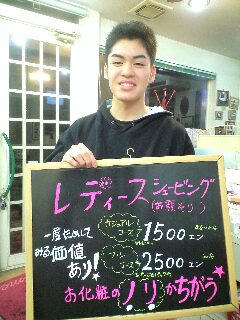 レディースシェービング
(お顔そり)
一度ためして
みる価値
あり!
カジュアル
コース
1500エン
フル
コース
2500エン
お化粧のノリがちがう